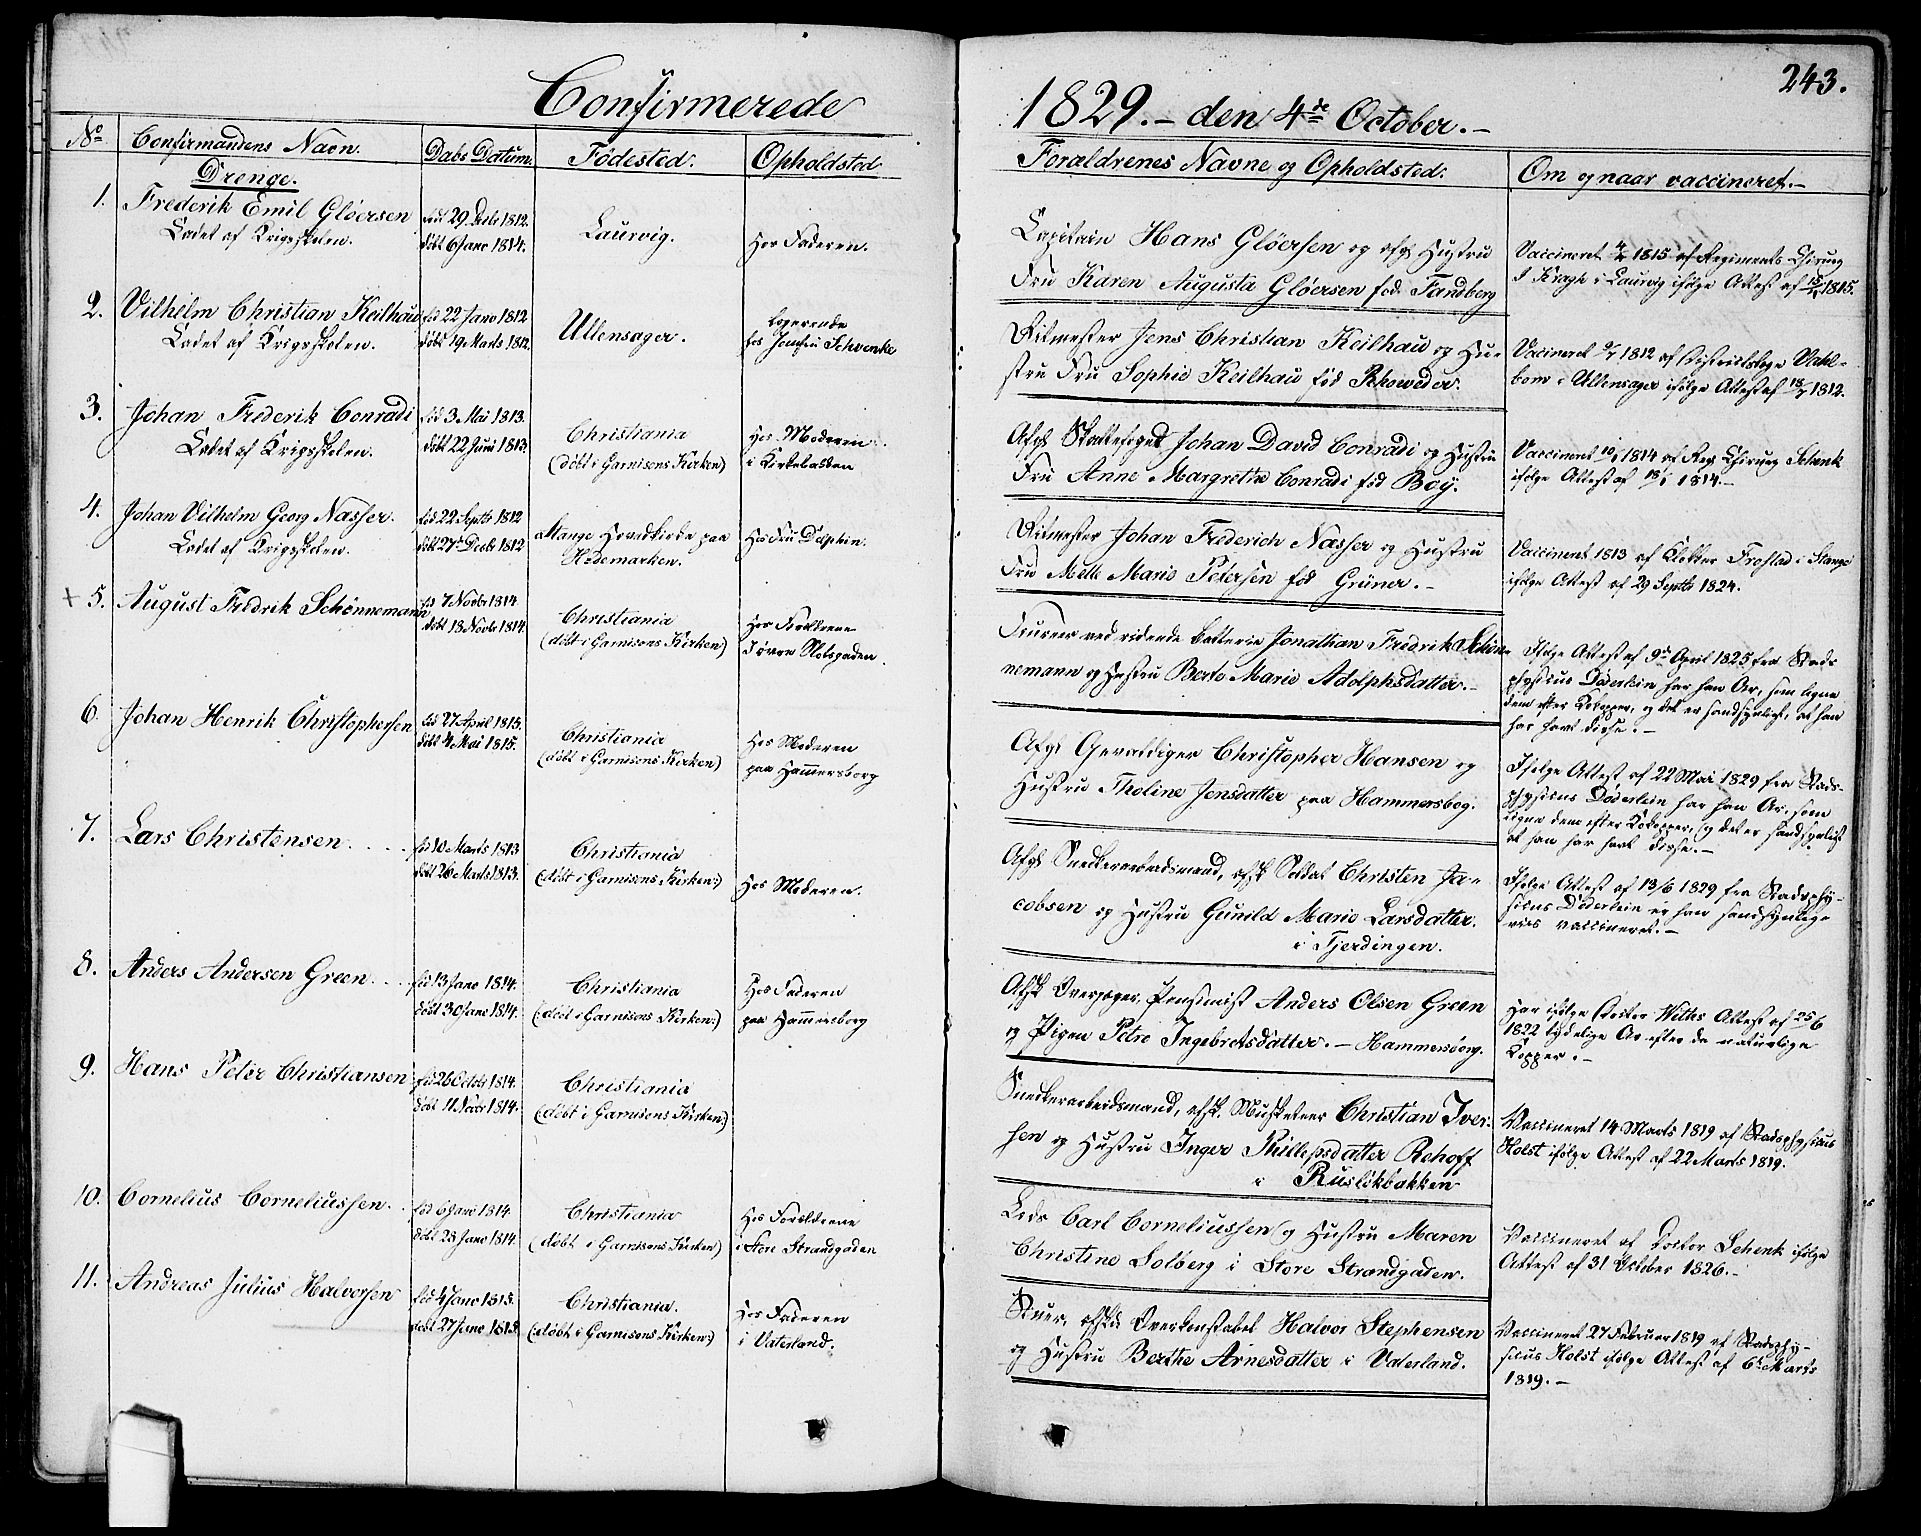 243.
Confirmerede 1829.- den 4de October.-
No
Confirmandens Navn.
Dabs Datum.
Fødested.
Opholdsted
Forældrenes Navne og Opholdsted.
Om og naar vaccineret.-
Drenge.
1.
Frederik Emil Gløersen
Cadet af Krigsskolen.
født 29 Decbr 1812.
døbt 6 Janr 1814.
Laurvig.
Hos Faderen.
Capitain Hans Gløersen og afg. Hustru
Fru Karen Augusta Gløersen fød Tandberg
Vaccineret 1815 af Regiments Chirurg
I Kragh i Laurvig ifølge Attest af 1815.
2.
Vilhelm Christian Keilhau
Cadet af Krigsskolen.
fød 22 Janr 1812
døbt 19 Marts 1812.
Ullensager.
Logerende
hos Jomfru Schvenke
Ritmester Jens Christian Keilhau og Hu-
stru Fru Sophie Keilhau fød Rhoweder.
Vaccineret 1812 af Districtslæge Vahl-
bom i Ullensager ifølge Attest af 18/7 1812.
3.
Johan Frederik Conradi
Cadet af Krigsskolen.
fød 3 Mai 1813.
døbt 22 Juni 1813.
Christiania
(døbt i Garnisons Kirken)
Hos Moderen
i Kirkebakken
Afg. Skattefoged Johan David Conradi og Hustru
Fru Anne Margrethe Conradi fød Boy.
Vaccineret 10/1 1814 af Reg. Chirurg Schenk
ifølge Attest af 18/1 1814.-
4.
Johan Vilhelm Georg Næsser.
Cadet af Krigsskolen.
fød 22 Septbr 1812
døbt 27de Decbr 1812
Stange Hovedkirke paa
Hedemarken.
Hos Fru Dolphin.
Ritmester Johan Frederich Næsser og Hustru
Fru Mette Marie Petersen fød Grüner.-
Vaccineret 1813 af Klokker Frostad i Stange
ifølge Attest af 29 Septbr 1824.
+ 5.
August Fredrik Schönnemann
fød 7 Novbr 1814
døbt 13 Novbr 1814.
Christiania
(døbt i Garnisons Kirken)
Hos Forældrene
i øvre Slotsgaden.
Fourer ved ridende Batterie Jonathan Fredrik Schön-
nemann og Hustru Berte Marie Adolphsdatter.-
Ifølge Attest af 9de April 1825 fra Stads
physicus Døderlein har han Ar, som ligne
dem efter Kokopper, og det er sandsynligt, at han
har havt disse.-
6.
Johan Henrik Christophersen
fød 27 April 1815.
døbt 4 Mai 1815.
Christiania
(døbt i Garnisons Kirken)
Hos Moderen
paa Hammersborg
Afg. Gevaldiger Christopher Hansen og
Hustru Tholine Jensdatter paa Hammersbog.
Ifølge Attest af 22 Mai 1829 fra Stads-
physicus Døderlein har han Ar, som
ligne dem efter Kokopper, og det er sandsynligt
at han har havt disse.-
7.
Lars Christensen . . . .
fød 10 Marts 1813
døbt 26 Marts 1813.
Christiania
(:døbt i Garnisons Kirken:)
Hos Moderen.
Afg. Snedkerarbeidsmand, afsk. Soldat Christen Ja-
cobsen og Hustru Gunild Marie Larsdatter.
i Tjerdingen.
Ifølge Attest af 13/6 1829 fra Stadsphy-
sicus Døderlein er han sandsynlig-
viis vaccineret.-
8.
Anders Andersen Green . . .
fød 13 Janr 1814.
døbt 30 Janr 1814.
Christiania
(:døbt i Garnisons Kirken:)
Hos Faderen
paa Hammersborg
Afsk. Overjæger, Pensionist Anders Olsen Green
og Pigen Petro Ingebretsdatter.- Hammersborg.
Har ifølge Doctor Withs Attest af 25/6
1822 tydelige Ar efter de naturlige
Kopper.-
9.
Hans Peter Christiansen
fød 26 Octobr 1814.
døbt 11 Novbr 1814.
Christiania
(:døbt i Garnisons Kirken:)
Snedkerarbeidsmand, afsk. Musketeer Christian Iver-
sen og Hustru Inger Phillepsdatter Rehoff
i Rusløkbakken
Vaccineret 14 Marts 1819 af Stadsphysicus
Holst ifølge Attest af 22 Marts 1819.
10.
Cornelius Corneliussen.
fød 6 Janr 1814.
døbt 23 Janr 1814.
Christiania
(døbt i Garnisons Kirken)
Hos Forældrene
i Store Strandgaden
Carl Corneliussen og Hustru Maren
Christine Solberg i Store Strandgaden.
Vaccineret af Doctor Schenk ifølge
Attest af 31 October 1826.-
11.
Andreas Julius Halvorsen
fød 4 Janr 1815.
døbt 27 Janr 1815.
Christiania.
(:døbt i Garnisons Kirken:)
Hos Faderen
i Vaterland.
Stuer, afskd. Overkonstabel Halvor Stephensen
og Hustru Berthe Arnesdatter i Vaterland.
Vaccineret 27 Februar 1819 af Stadsphy-
sicus Holst ifølge Attest af 6te Marts
1819.-